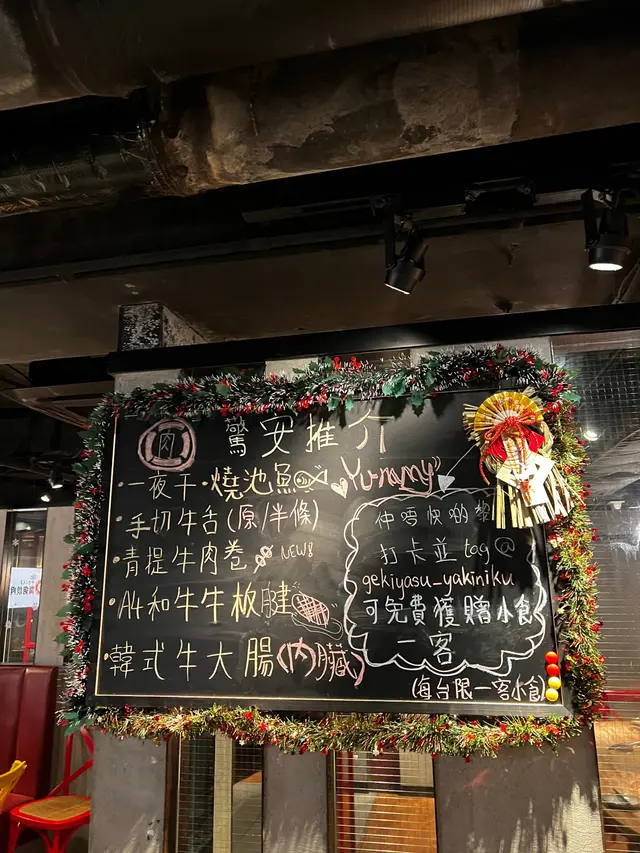 肉 驚安推介
・一夜干・燒池魚 Yu-namy
・手切牛舌(原/半條)
・青提牛肉卷 NEW!
・A4和牛牛板腱
・韓式牛大腸(內臟)
仲唔快啲
打卡並tag@
gekiyasu_yakiniku
可免費獲贈小食
一客
(每台限一客小食)